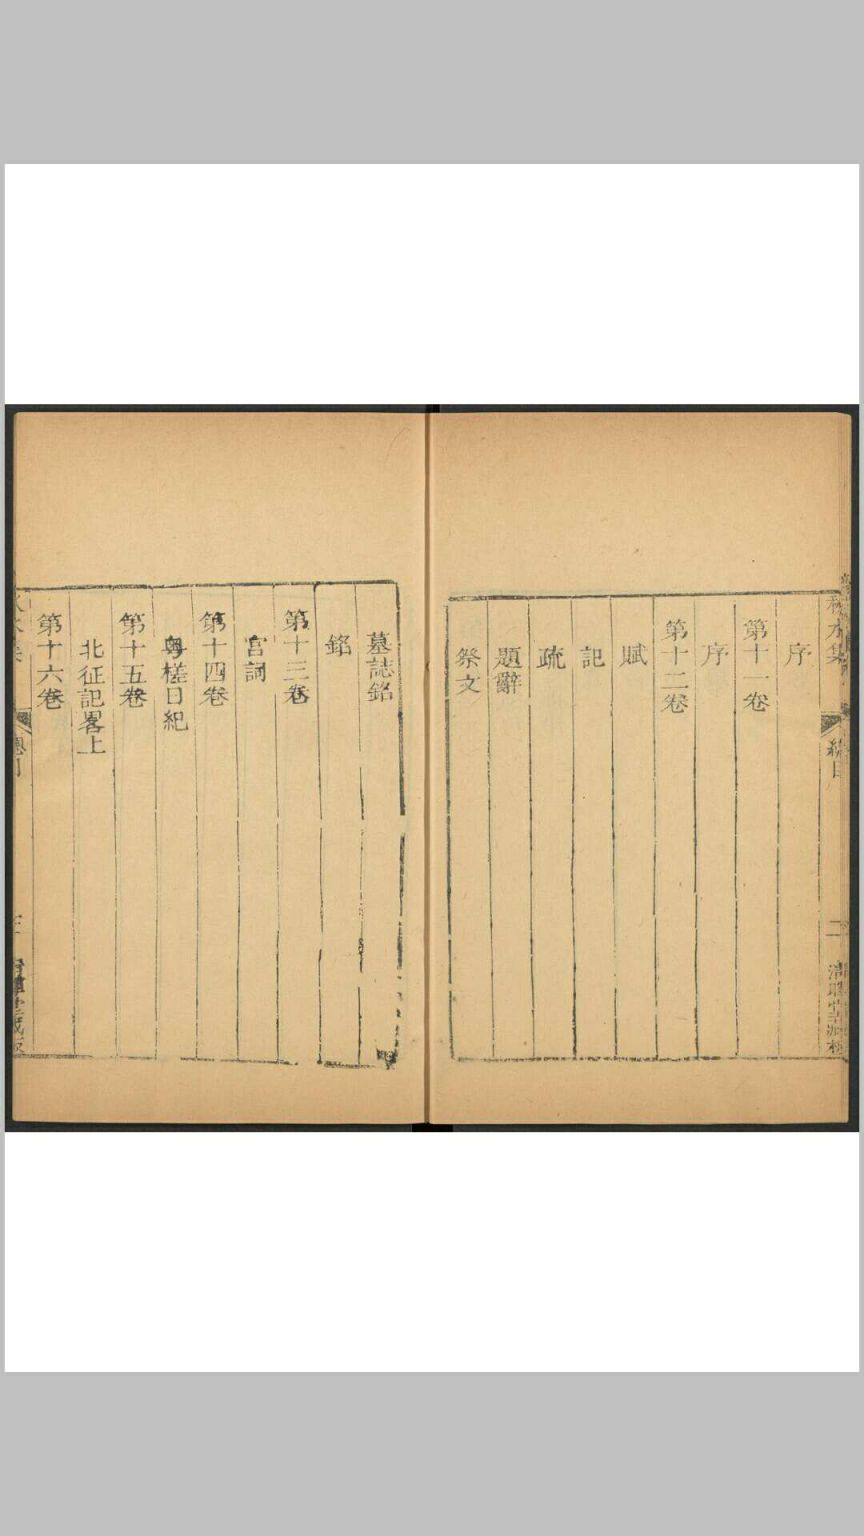 秋水集
總目
二
序
第十一卷
序
第十二卷
賦
記
疏
題辭
祭文
墓誌銘
銘
第十三卷
宮詞
第十四卷
粤槎日紀
第十五卷
北征記畧上
第十六卷